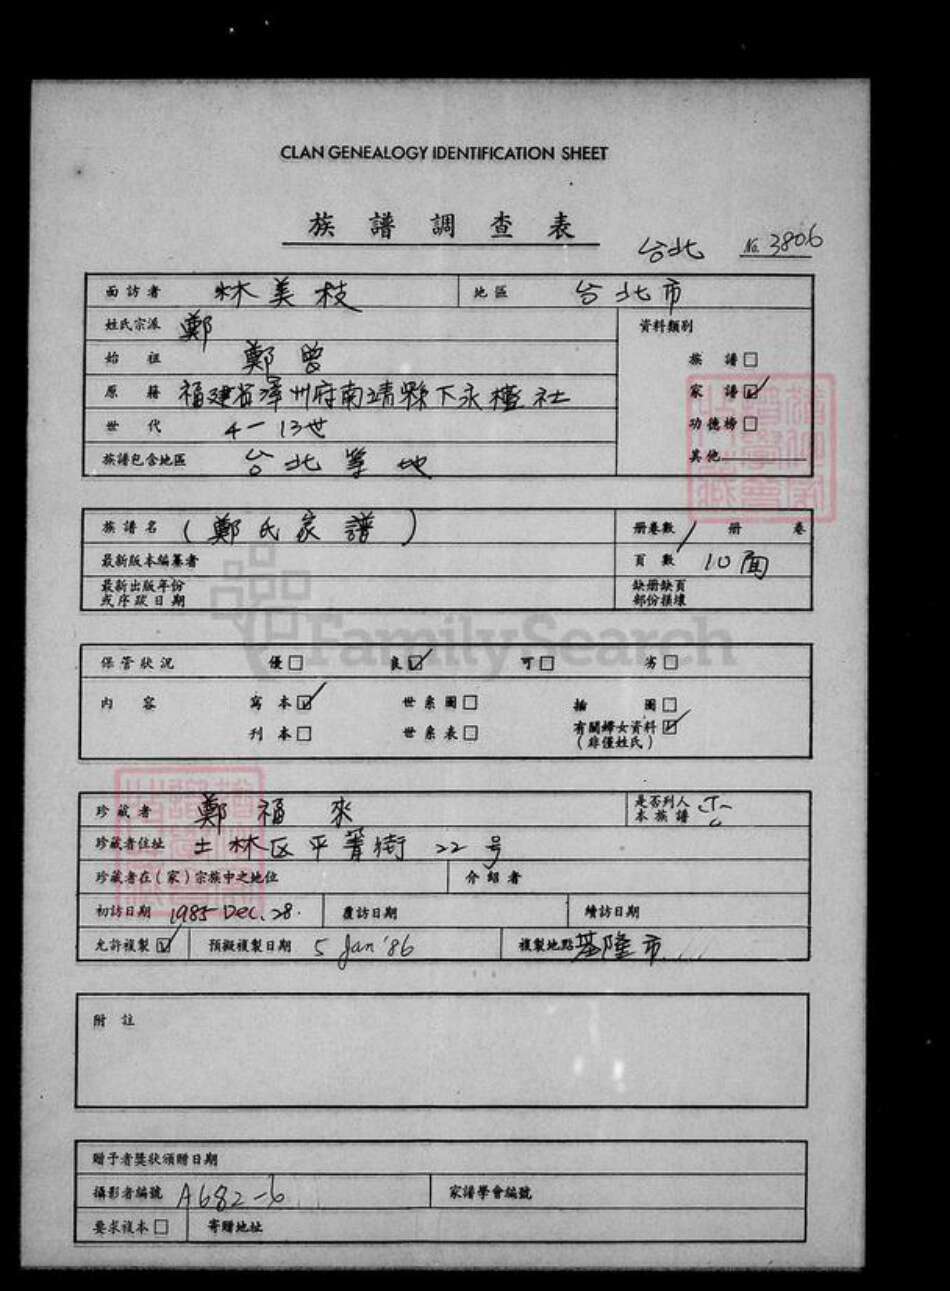 CLAN GENEALOGY IDENTIFICATION SHEET
族 譜 調 查 表
台北 No. 3806
面訪者 林美枝 地區 台北市
姓氏宗派 鄭 資料類別
始祖 鄭曾 族譜☐
原籍 福建省漳州府南靖縣下永檀社 家譜☑
世代 4-13世 功德榜☐
族譜包含地區 台北等地 其他
族譜名 (鄭氏家譜) 册卷數 / 册 卷
最新版本編纂者 頁數 10面
最新出版年份 缺册缺頁
或序跋日期 部份損壞
保管狀況 優☐ 良☑ 可☐ 劣☐
內容 寫本☑ 世系圖☐ 插圖☐
刊本☐ 世系表☐ 有關婦女資料☑
(非僅姓氏)
珍藏者 鄭福來 是否列入
本族譜
珍藏者住址 士林区平菁街22号
珍藏者在(家)宗族中之地位 介紹者
初訪日期 1985 Dec. 28. 覆訪日期 續訪日期
允許複製☑ 預擬複製日期 5 Jan '86 複製地點 基隆市
附註
贈予者獎狀頒贈日期
攝影者編號 A682-6 家譜學會編號
要求複本☐ 寄贈地址
FamilySearch